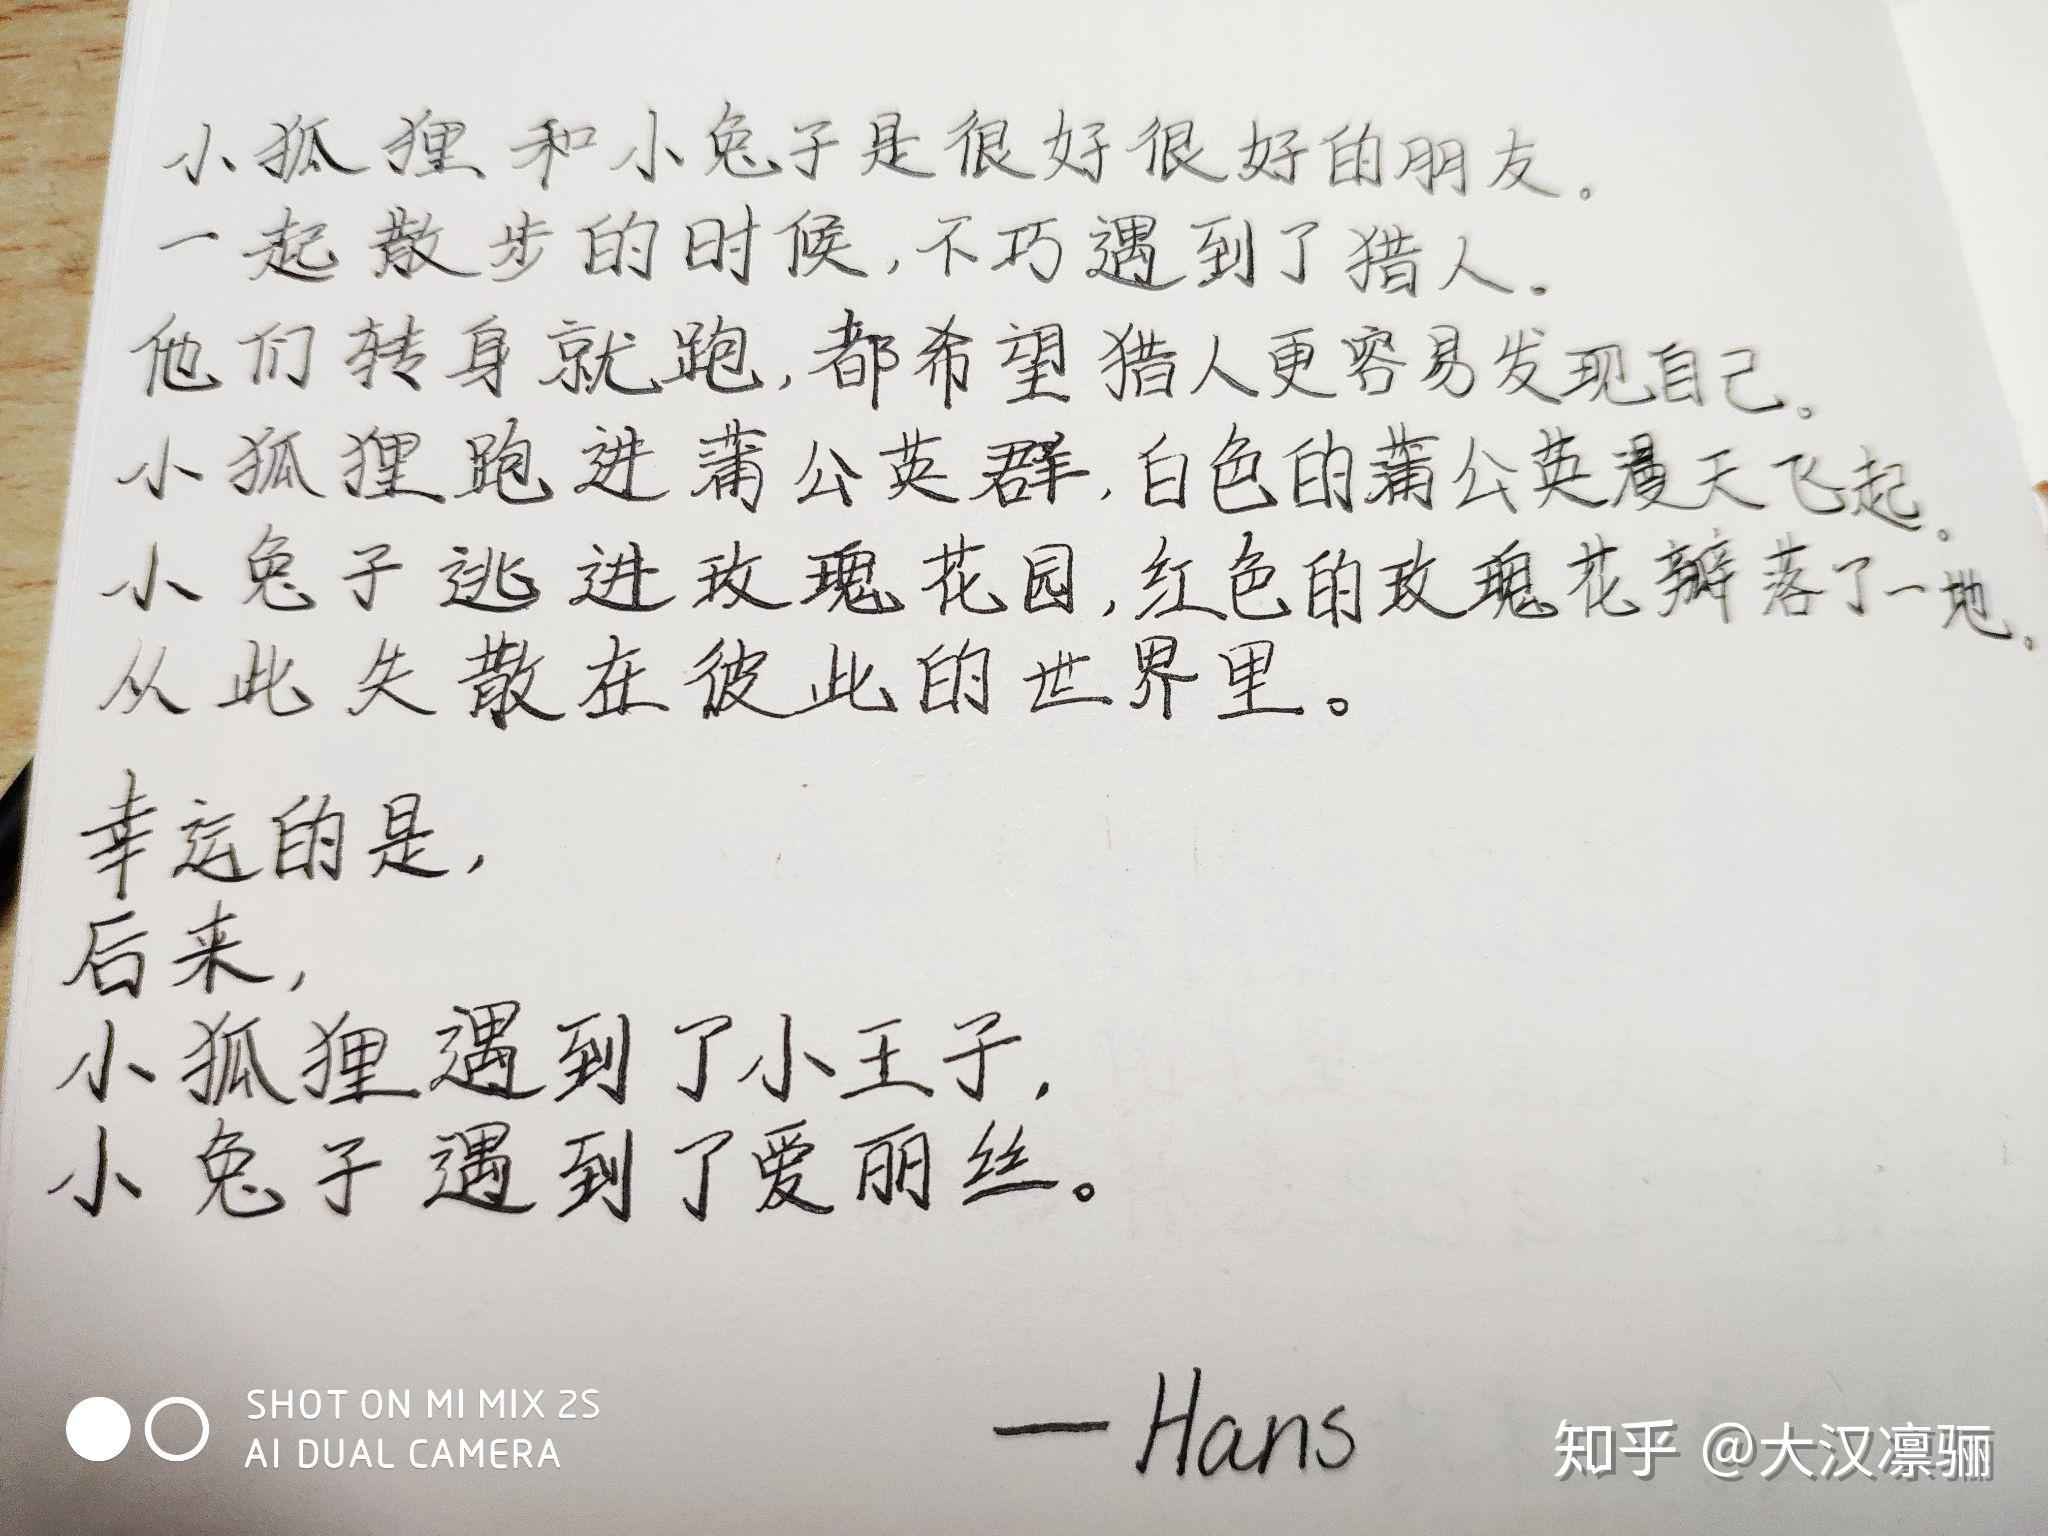 小狐狸和小兔子是很好很好的朋友。
一起散步的时候,不巧遇到了猎人。
他们转身就跑,都希望猎人更容易发现自己。
小狐狸跑进蒲公英群,白色的蒲公英漫天飞起。
小兔子逃进玫瑰花园,红色的玫瑰花瓣落了一地。
从此失散在彼此的世界里。
幸运的是,
后来,
小狐狸遇到了小王子,
小兔子遇到了爱丽丝。
—Hans
SHOT ON MI MIX 2S
AI DUAL CAMERA
知乎 @大汉凛骊